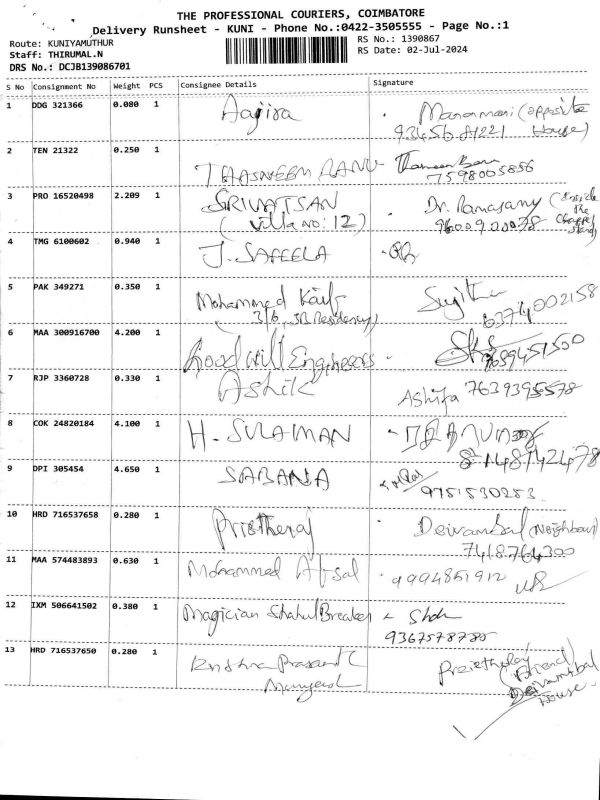 THE PROFESSIONAL COURIERS, COIMBATORE
Delivery Runsheet - KUNI - Phone No.:0422-3505555 - Page No.:1
Route: KUNIYAMUTHUR
Staff: THIRUMAL.N
DRS No.: DCJB139086701
RS No.: 1390867
RS Date: 02-Jul-2024
S No Consignment No Weight PCS Consignee Details Signature
1 DDG 321366 0.080 1 Aajira Manonmani (opposite
93456 81221 House)
2 TEN 21322 0.250 1 THASNEEM BANU
7598005856
3 PRO 16520498 2.209 1 SRIVATSAN Dr. Ramasamy
(Villa no: 12) 9600920078
4 TMG 6100602 0.940 1 J. SAFEELA
5 PAK 349271 0.350 1 Mohammed Kaif
3/6, JB Residency) 6374002158
6 MAA 300916700 4.200 1 Goodwill Engineers
7 RJP 3360728 0.330 1 Ashik Ashifa 7639395578
8 COK 24820184 4.100 1 H. SULAIMAN
8148142478
9 DPI 305454 4.650 1 SABANA
9751530253
10 HRD 716537658 0.280 1 Prietheraj Deivambal (Neighbour)
7418764300
11 MAA 574483893 0.630 1 Mohammed Afsal 9994851912
12 IXM 506641502 0.380 1 Magician Shahul Breaker
9367578785
13 HRD 716537650 0.280 1 Krishna Prasanth Prietheraj (Friend)
Deivambal
House.